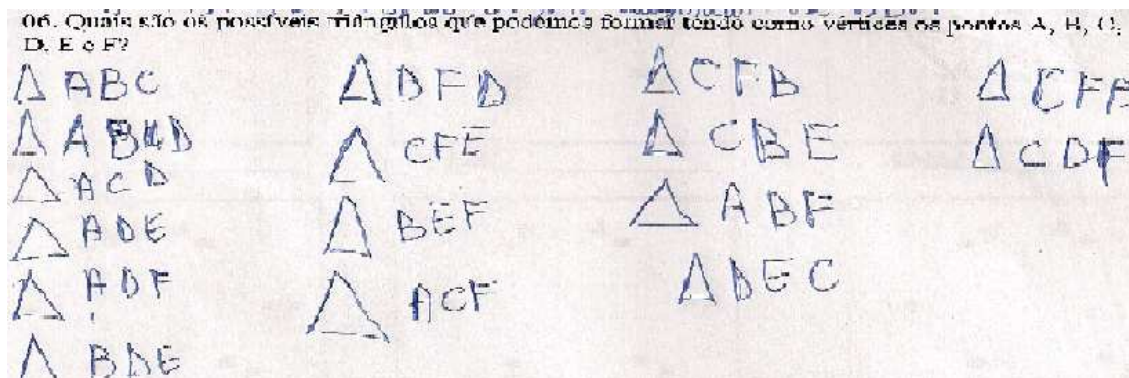 06. Quais são os possíveis triângulos que podemos formar tendo como vértices os pontos A, B, C,
D, E e F?
Δ ABC
Δ A D
Δ ACD
Δ ADE
Δ ADF
Δ BDE
Δ BFD
Δ CFE
Δ BEF
Δ ACF
Δ CFB
Δ CBE
Δ ABF
Δ DEC
Δ CF
Δ CDF